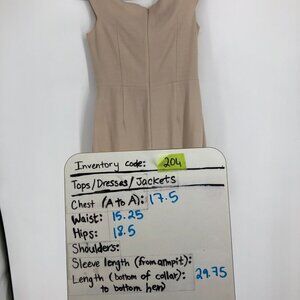 Inventory code: 204
Tops/Dresses/Jackets
Chest (A to A): 17.5
Waist: 15.25
Hips: 18.5
Shoulders:
Sleeve length (from armpit):
Length (bottom of collar: 29.75
to bottom hem)